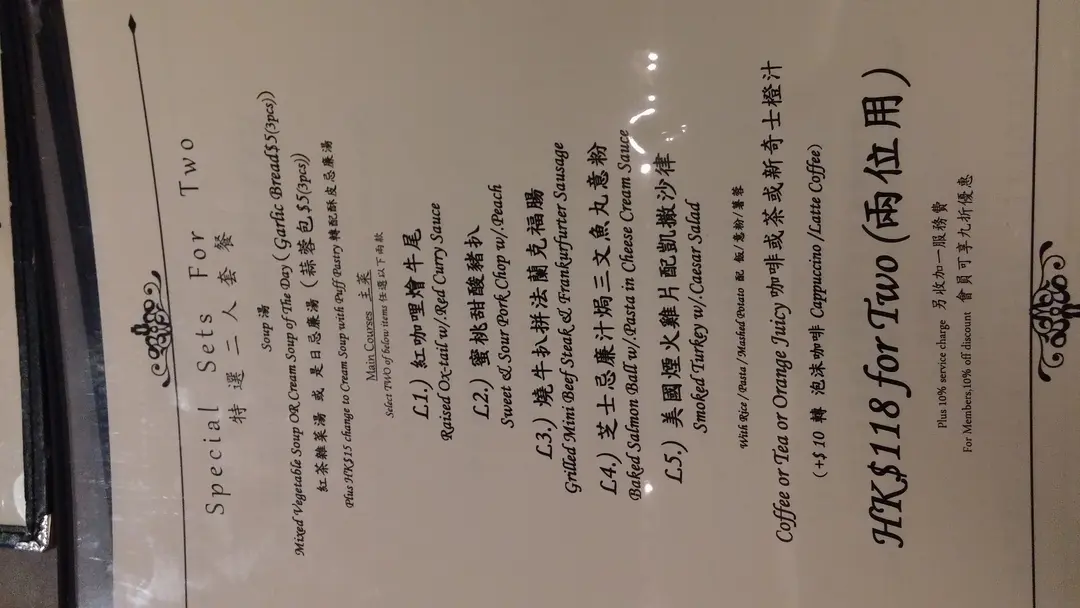 Special Sets For Two
特選二人套餐
Soup 湯
Mixed Vegetable Soup OR Cream Soup of The Day ( Garlic Bread$5(3pcs))
紅茶雜菜湯 或 是日忌廉湯 ( 蒜蓉包 $5(3pcs))
Plus HK$15 change to Cream Soup with Puff Pastry 轉配酥皮忌廉湯
Main Courses 主菜
Select TWO of below items 任選以下兩款
L1.) 紅咖哩燴牛尾
Raised Ox-tail w/.Red Curry Sauce
L2.) 蜜桃甜酸豬扒
Sweet & Sour Pork Chop w/.Peach
L3.) 燒牛扒拼法蘭克福腸
Grilled Mini Beef Steak & Frankurfurter Sausage
L4.) 芝士忌廉汁焗三文魚丸意粉
Baked Salmon Ball w/.Pasta in Cheese Cream Sauce
L5.) 美國煙火雞片配凱撒沙律
Smoked Turkey w/.Caesar Salad
With Rice / Pasta / Mashed Potato 配 飯/意粉/薯蓉
Coffee or Tea or Orange Juicy 咖啡或茶或新奇士橙汁
(+$ 10 轉 泡沫咖啡 Cappuccino /Latte Coffee)
HK$118 for Two (兩位用)
Plus 10% service charge 另收加一服務費
For Members,10% off discount 會員可享九折優惠